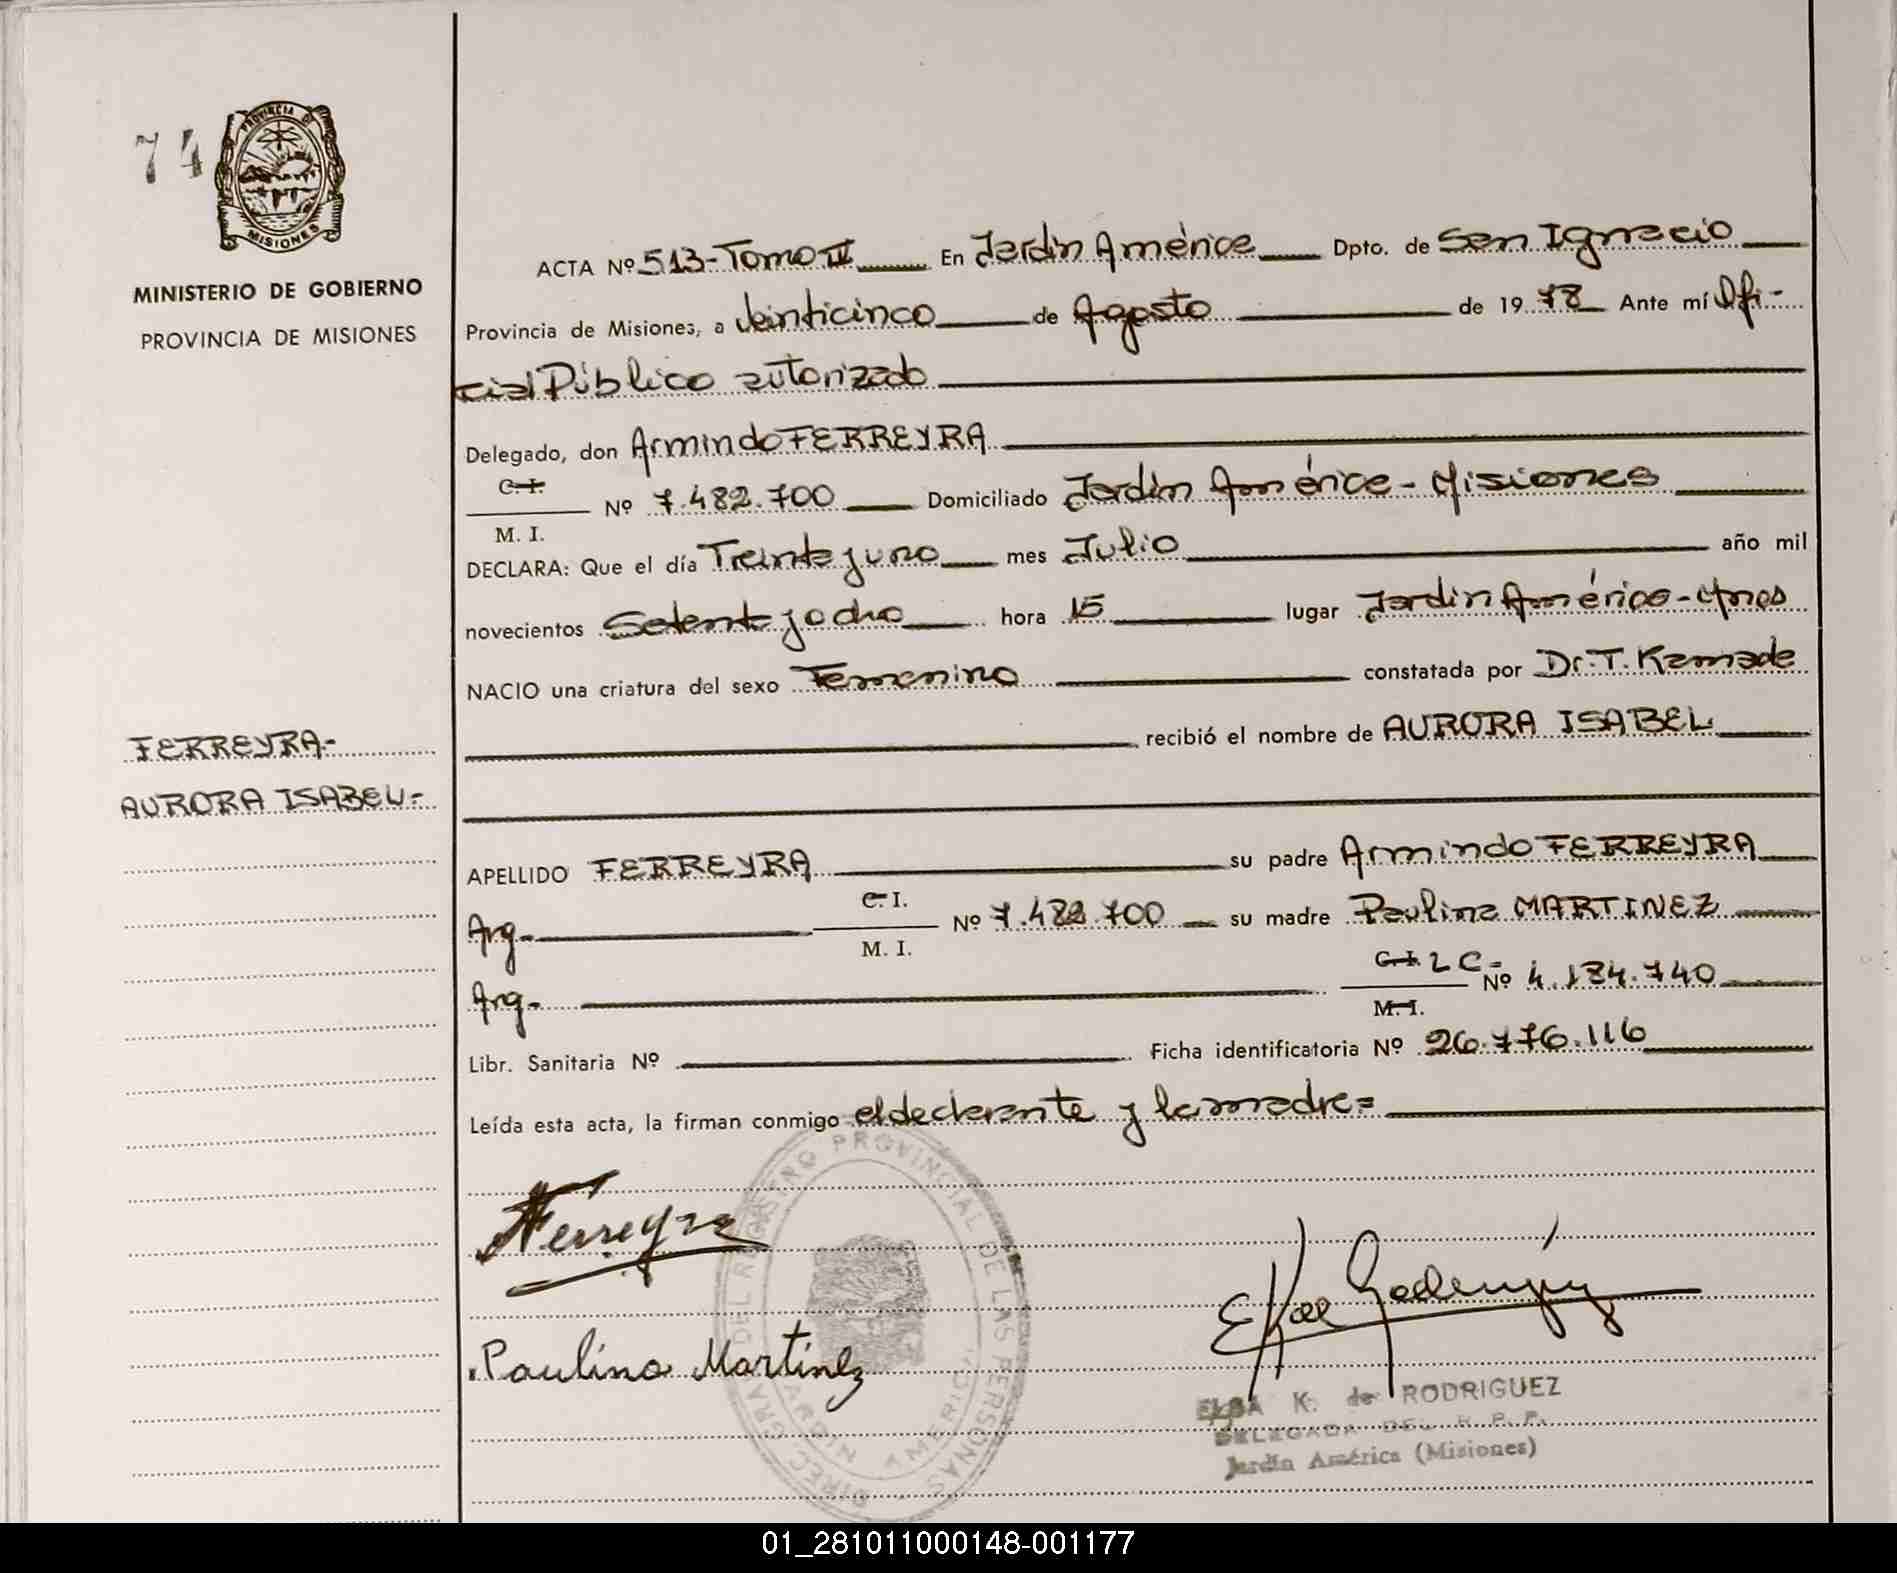 74
PROVINCIA D
MISIONES
MINISTERIO DE GOBIERNO
PROVINCIA DE MISIONES
FERREYRA-
AURORA ISABEL-
ACTA Nº 513-Tomo II En Jardín América Dpto. de San Ignacio
Provincia de Misiones, a Veinticinco de Agosto de 1978 Ante mí Ofi-
cial Público autorizado
Delegado, don Armindo FERREYRA
C. I.
M. I.
Nº 7.482.700 Domiciliado Jardín América - Misiones
DECLARA: Que el día Treinta y uno mes Julio año mil
novecientos Setenta y ocho hora 15 lugar Jardín América - Mnes
NACIO una criatura del sexo Femenino constatada por Dr. T. Kamade
recibió el nombre de AURORA ISABEL
APELLIDO FERREYRA su padre Armindo FERREYRA
Arg- C. I. M. I. Nº 7.482.700 su madre Paulina MARTINEZ
Arg- C. I. L C- M. I. Nº 4.184.740
Libr. Sanitaria Nº Ficha identificatoria Nº 26.776.116
Leída esta acta, la firman conmigo el declarante y la madre=
AFerreyra
Paulina Martinez
DIREC. GRAL. DEL REGISTRO PROVINCIAL DE LAS PERSONAS
JARDIN AMERICA
ELBA K. de RODRIGUEZ
DELEGADA DEL R. P. P.
Jardín América (Misiones)
01_281011000148-001177